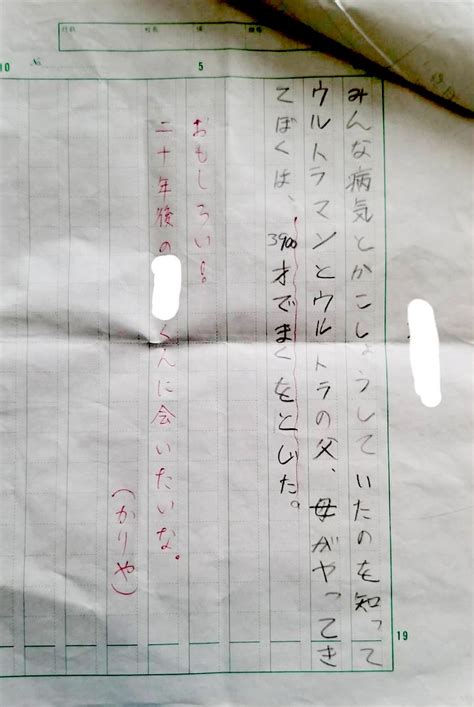 みんな病気とかこしょうしていたのを知って
ウルトラマンとウルトラの父、母がやってき
てぼくは、3900才でまくをとじた。
おもしろい!
二十年後の
くんに会いたいな。
(かりや)
19
5
10
№